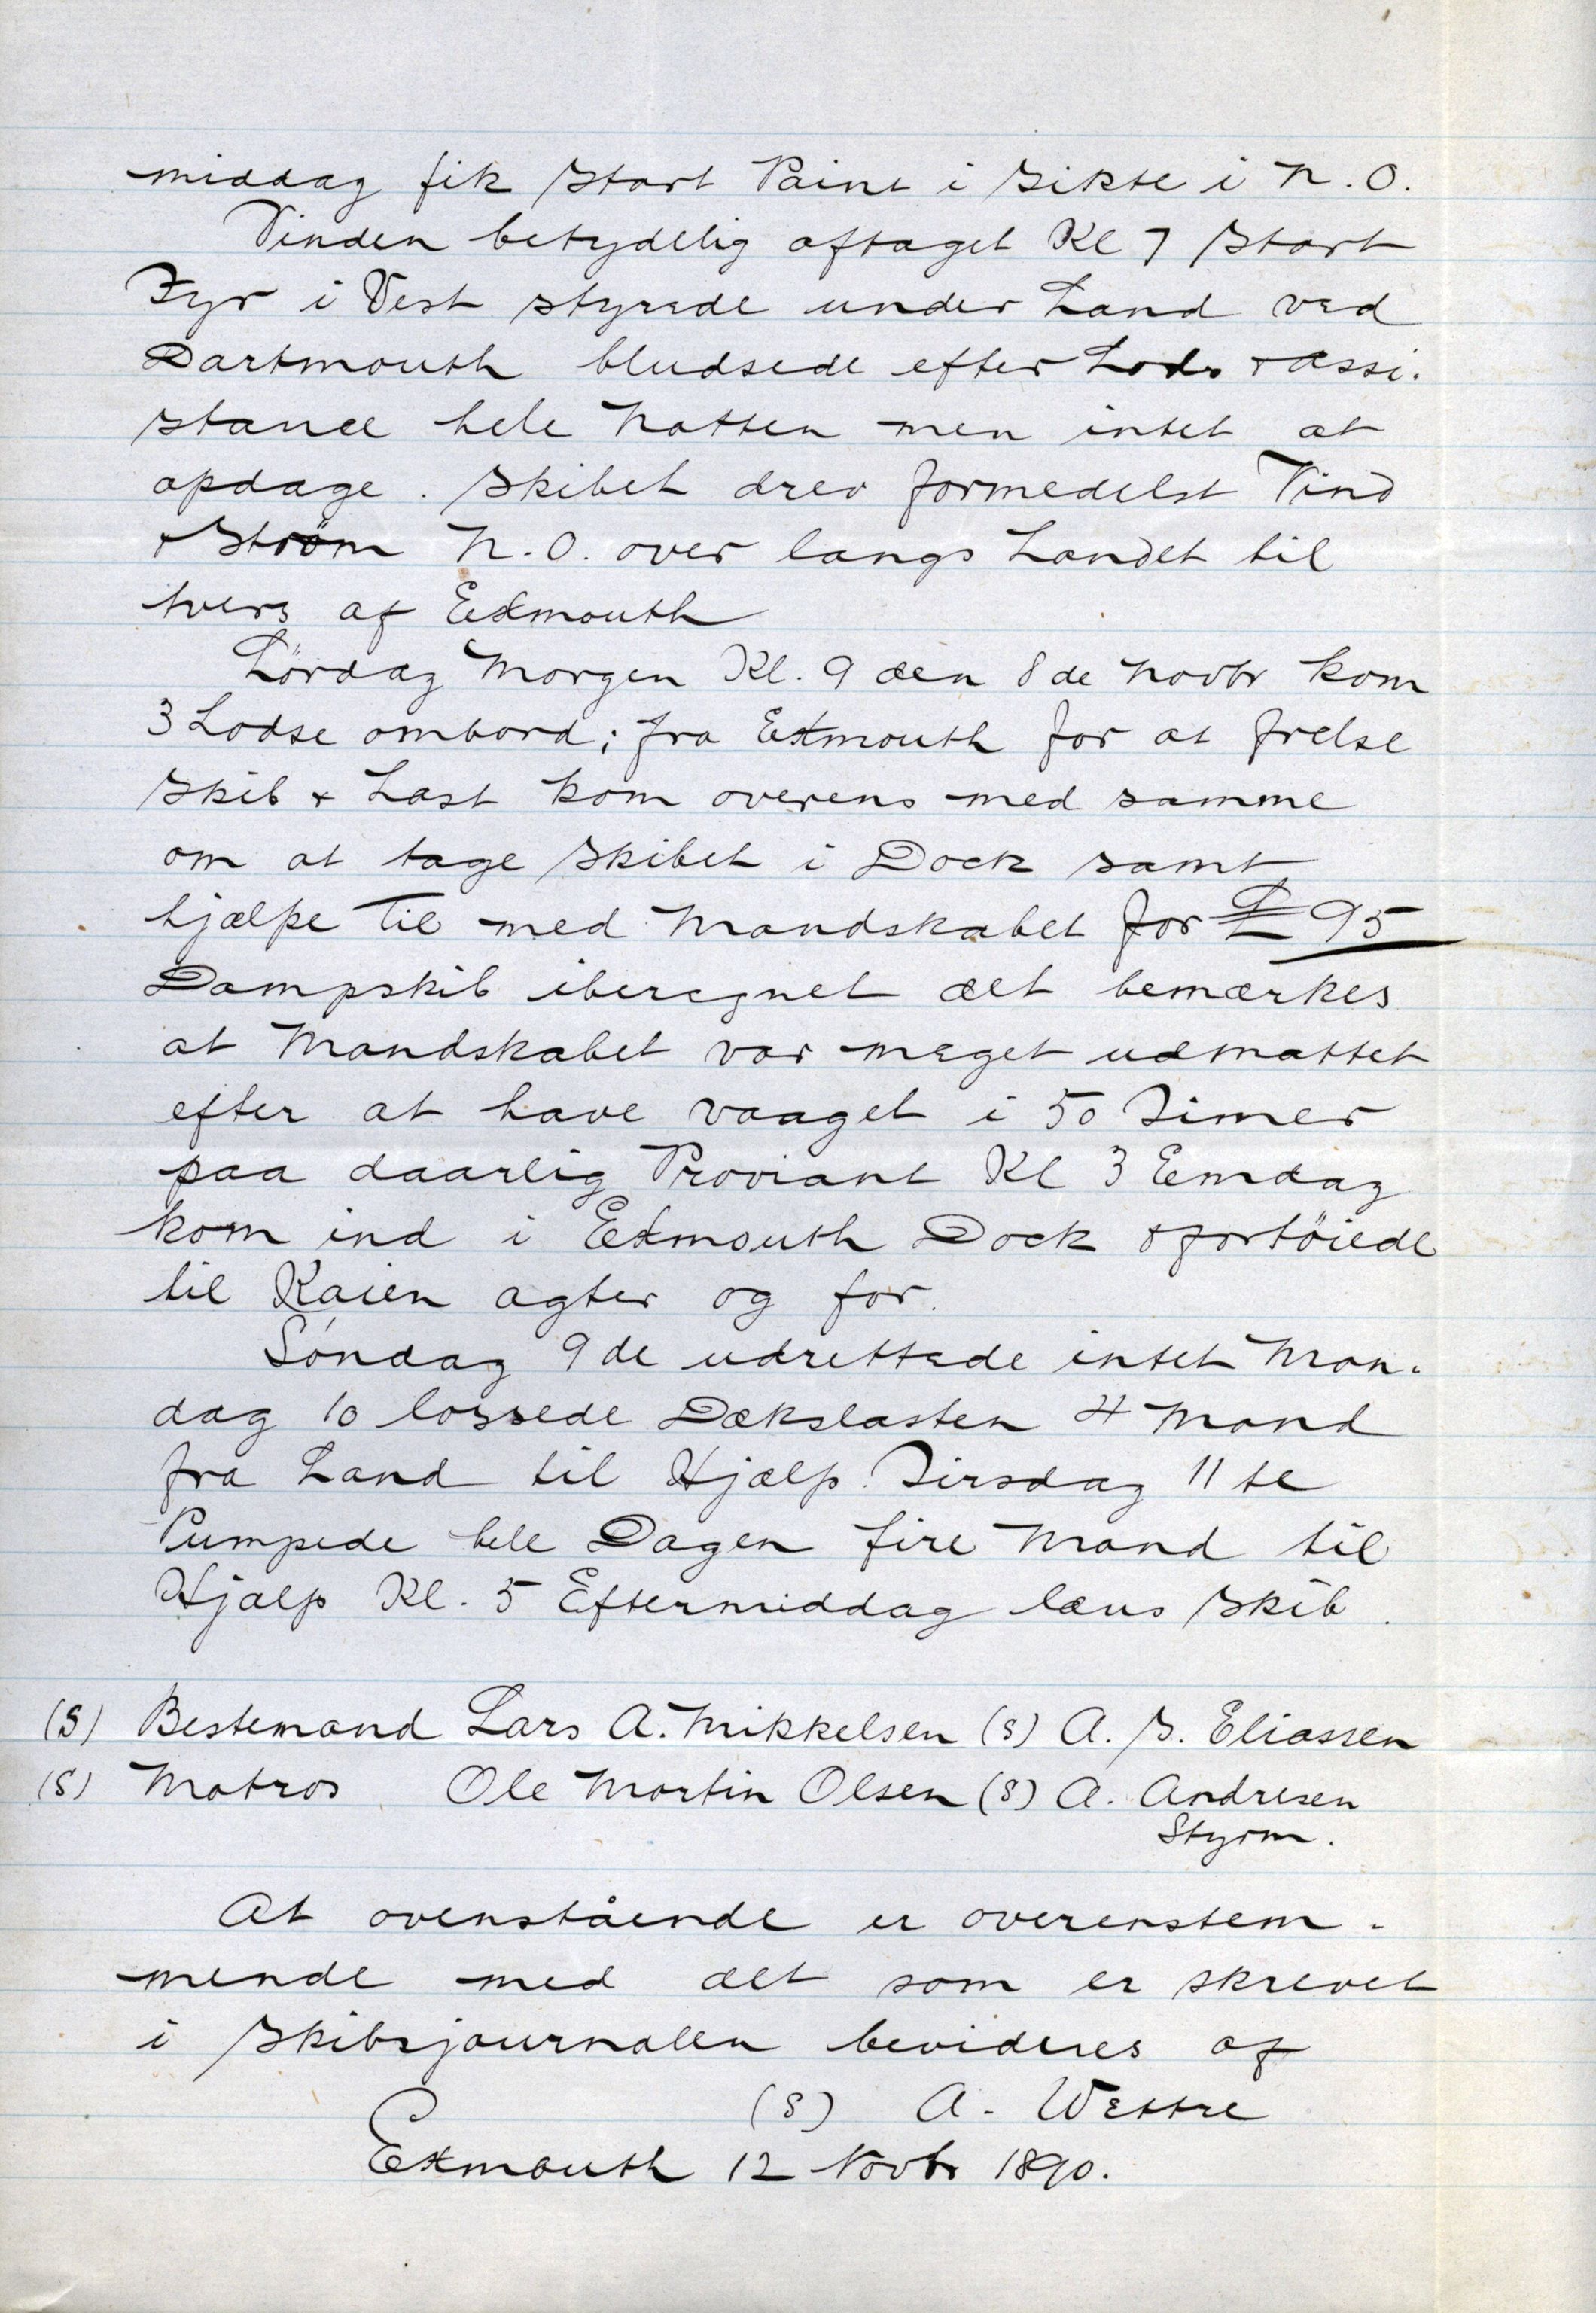 middag fik Start Point i Sikte i N.O.
Vinden betydelig aftaget Kl 7 Start
Fyr i Vest styrede under Land ved
Dartmouth bludsede efter Lods & Assi-
stance hele Natten men intet at
opdage. Skibet drev formedelst Vind
& Ström N.O. over langs Landet til
tvers af Exmouth
Lördag Morgen Kl. 9 den 8de Novbr kom
3 Lodse ombord; fra Exmouth for at frelse
Skib & Last kom overens med samme
om at tage Skibet i Dock samt
hjælpe til med Mandskabet for £ 95
Dampskib iberegnet det bemærkes
at Mandskabet var meget udmattet
efter at have vaaget i 50 Timer
paa daarlig Proviant Kl 3 Emdag
kom ind i Exmouth Dock & fortöiede
til Kaien agter og for.
Söndag 9de udrettede intet Man-
dag 10 lossede Dækslasten 4 Mand
fra Land til Hjælp. Tirsdag 11te
Pumpede hele Dagen fire Mand til
Hjælp Kl. 5 Eftermiddag læns Skib.
(S) Bestemand Lars A. Mikkelsen (S) A. S. Eliassen
(S) Matros Ole Martin Olsen (S) A. Andresen
Styrm.
At ovenstående er overenstem-
mende med det som er skrevet
i Skibsjournalen bevidnes af
(S) A. Wettre
Exmouth 12 Novbr 1890.